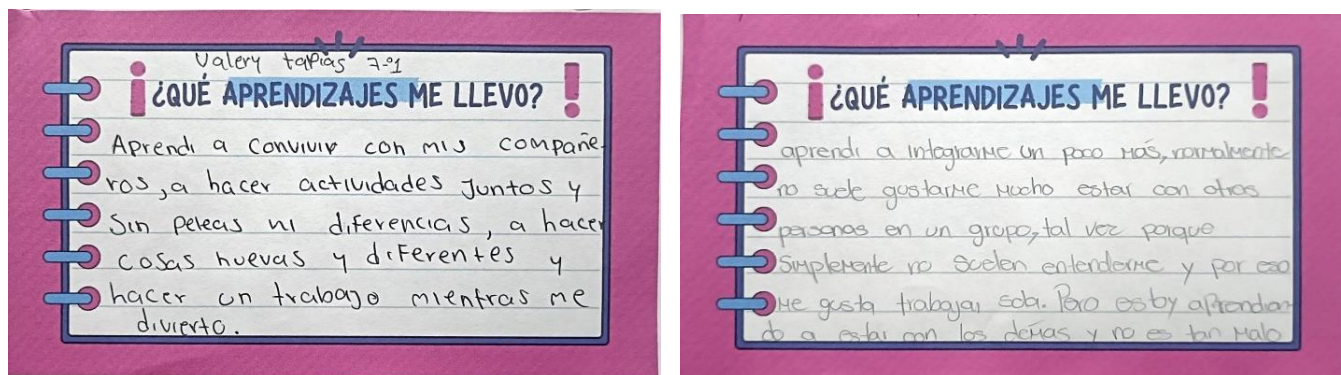 Valery tapias 7-°1
¡ ¿QUÉ APRENDIZAJES ME LLEVO? !
Aprendi a convivir con mis compañe-
ros, a hacer actividades juntos y
sin peleas ni diferencias, a hacer
cosas nuevas y diferentes y
hacer un trabajo mientras me
divierto.
¡ ¿QUÉ APRENDIZAJES ME LLEVO? !
aprendi a integrarme un poco más, normalmente
no suele gustarme mucho estar con otras
personas en un grupo, tal vez porque
simplemente no suelen entenderme y por eso
me gusta trabajar sola. Pero estoy aprendien-
do a estar con los demás y no es tan malo